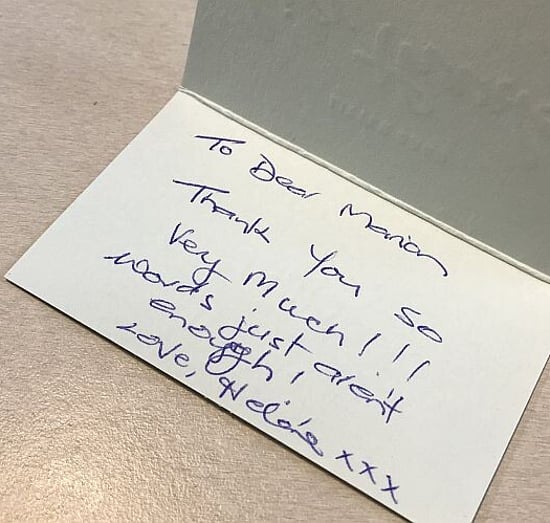 To Dear Marion
Thank you so
very much!!!
Words just aren't
enough,
Love, Helena xxx